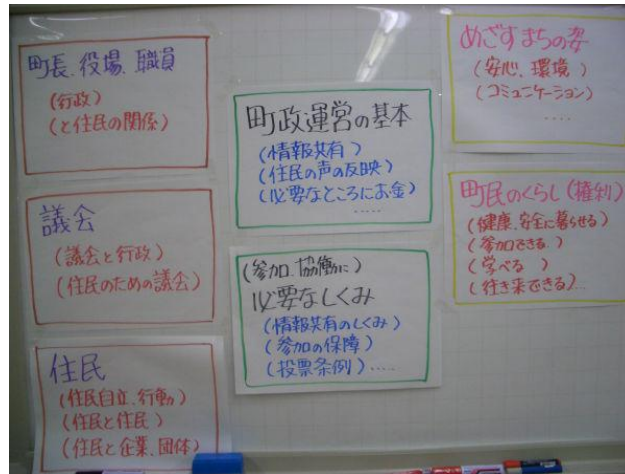 町長、役場、職員
(行政)
(と住民の関係)
議会
(議会と行政)
(住民のための議会)
住民
(住民自立、行動)
(住民と住民)
(住民と企業、団体)
町政運営の基本
(情報共有)
(住民の声の反映)
(必要なところにお金)
.....
(参加、協働に)
必要なしくみ
(情報共有のしくみ)
(参加の保障)
(投票条例).....
めざすまちの姿
(安心、環境)
(コミュニケーション)
.....
町民のくらし(権利)
(健康、安全に暮らせる)
(参加できる)
(学べる)
(行き来できる)...